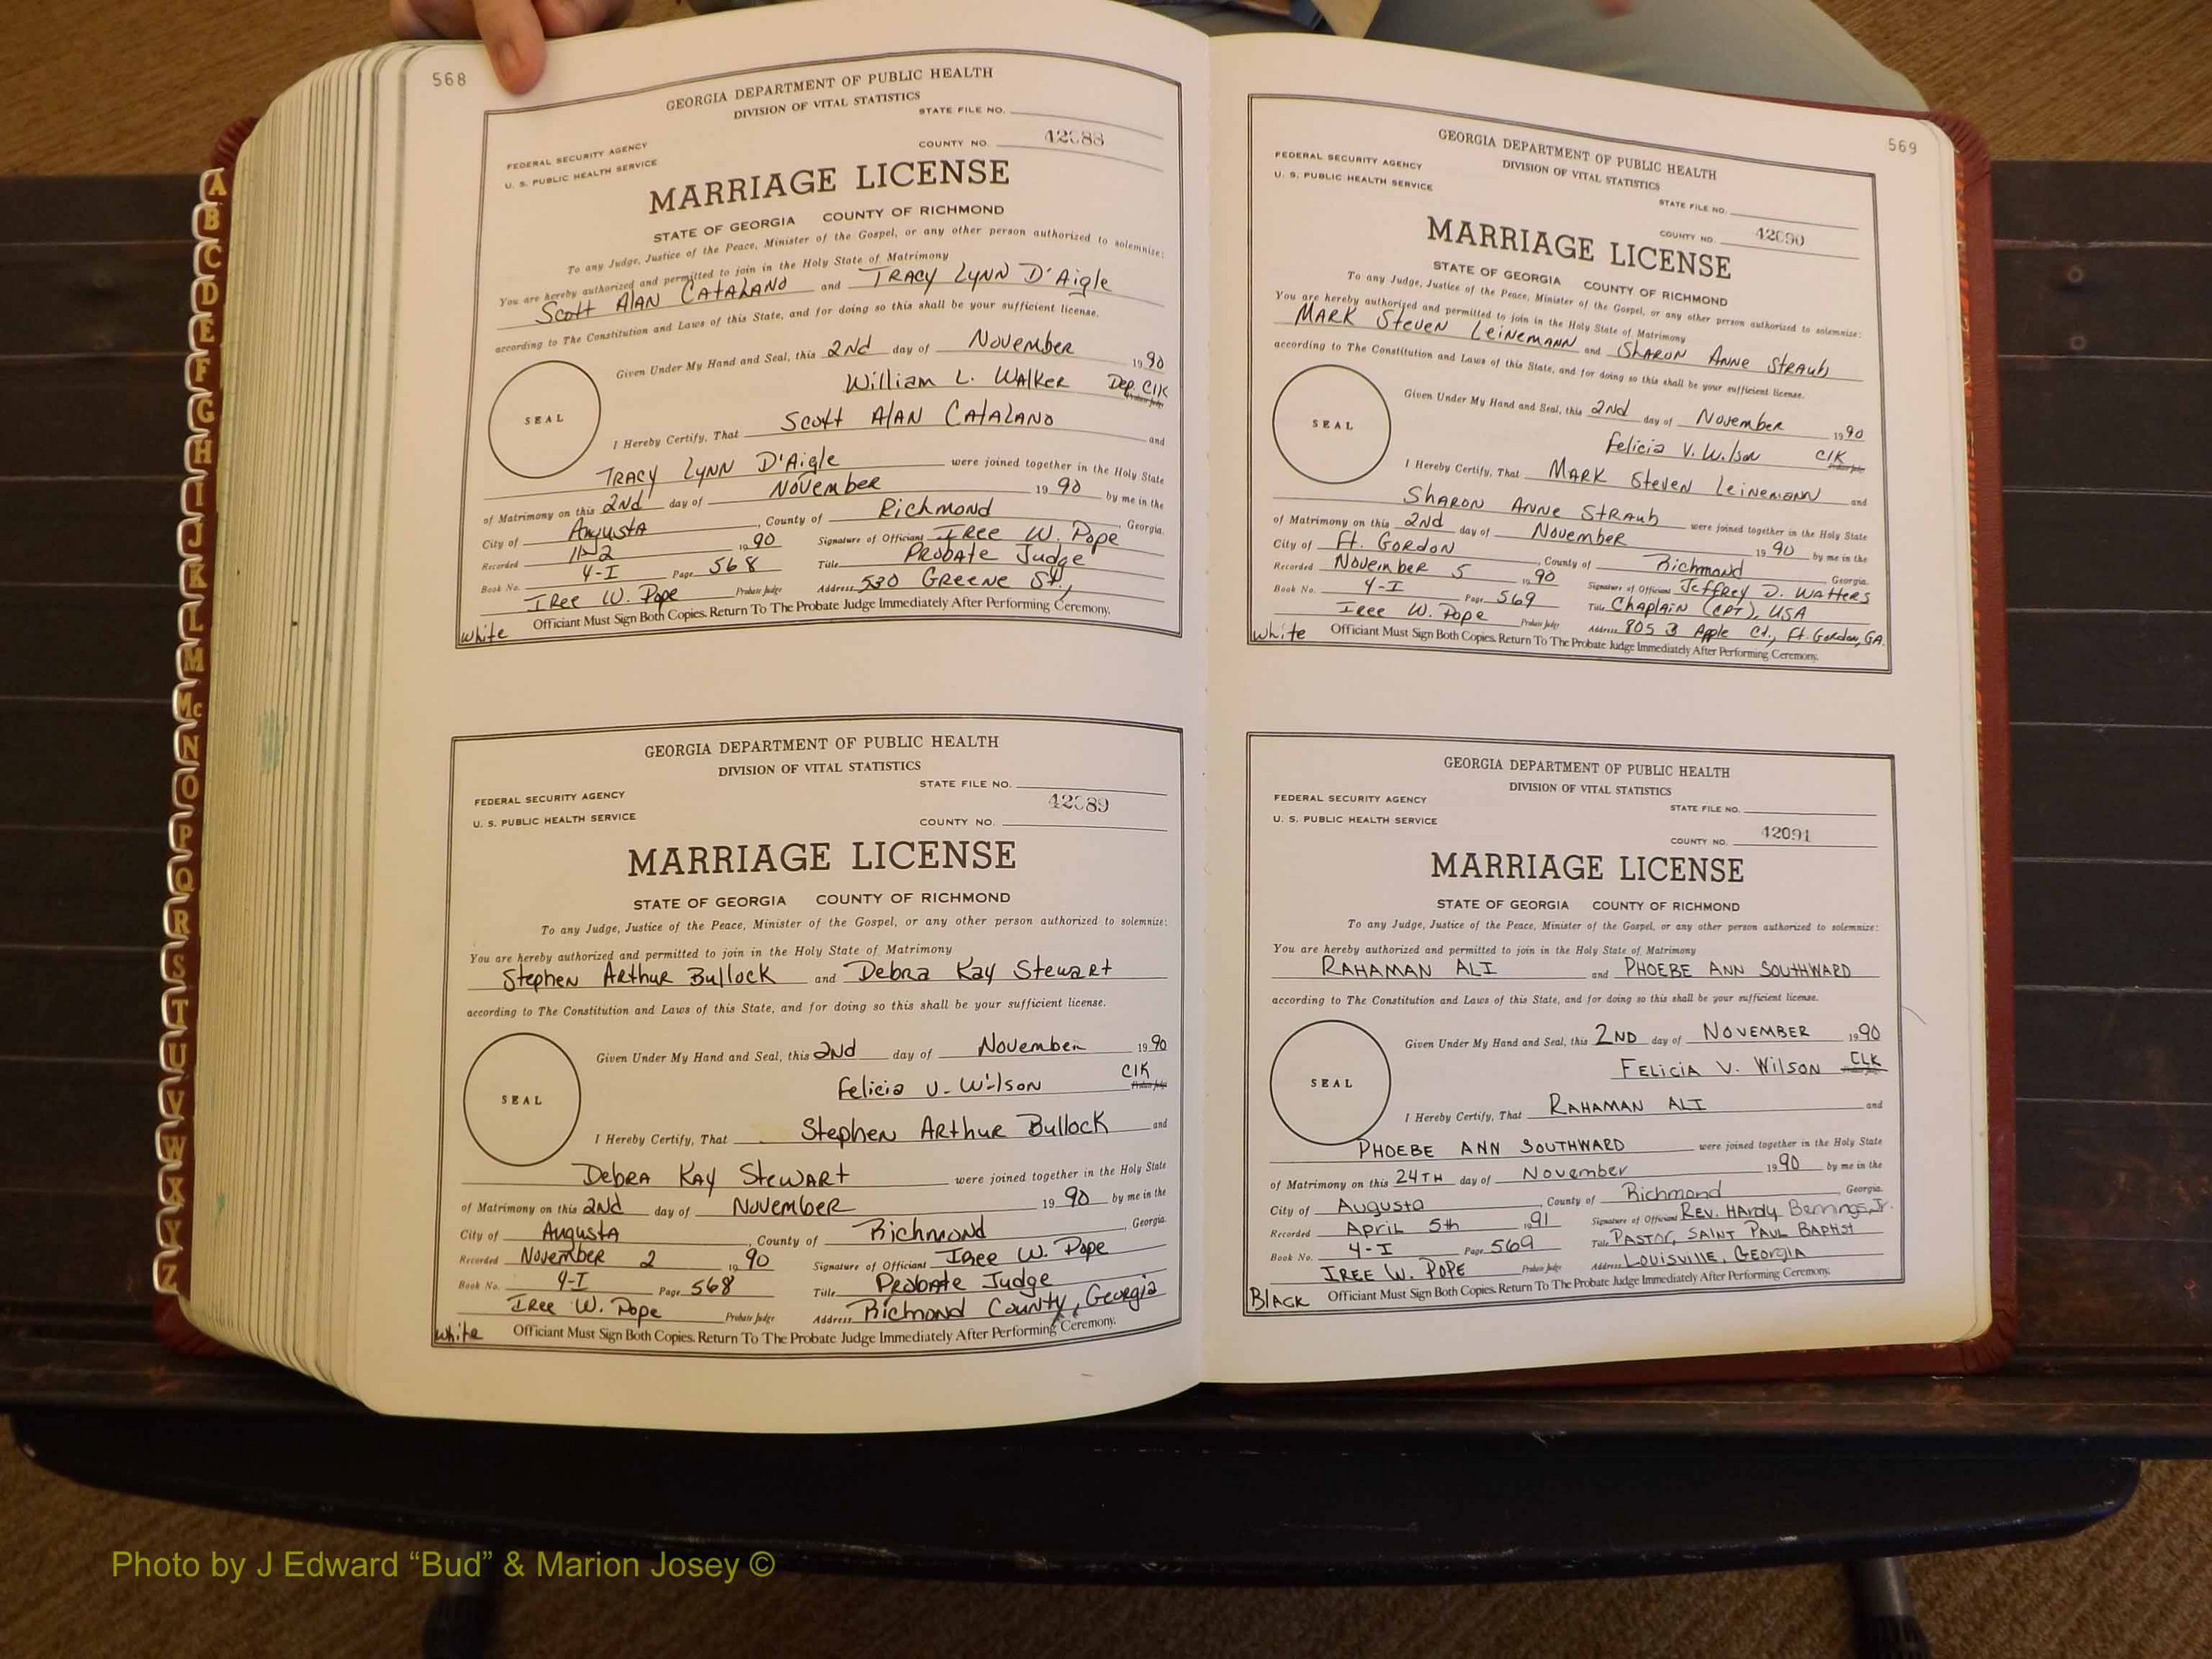 568
GEORGIA DEPARTMENT OF PUBLIC HEALTH
DIVISION OF VITAL STATISTICS
STATE FILE NO.
FEDERAL SECURITY AGENCY
U. S. PUBLIC HEALTH SERVICE
COUNTY NO. 42088
MARRIAGE LICENSE
STATE OF GEORGIA COUNTY OF RICHMOND
To any Judge, Justice of the Peace, Minister of the Gospel, or any other person authorized to solemnize:
You are hereby authorized and permitted to join in the Holy State of Matrimony
Scott Alan Catalano and Tracy Lynn D'Aigle
according to The Constitution and Laws of this State, and for doing so this shall be your sufficient license.
Given Under My Hand and Seal, this 2nd day of November 1990
William L. Walker Dep. Clk
Probate Judge
SEAL
I Hereby Certify, That Scott Alan Catalano and
Tracy Lynn D'Aigle were joined together in the Holy State
of Matrimony on this 2nd day of November 1990 by me in the
City of Augusta, County of Richmond, Georgia.
Recorded 11-2 1990 Signature of Officiant Iree W. Pope
Book No. 4-I Page 568 Title Probate Judge
Iree W. Pope Probate Judge Address 530 Greene St.,
White Officiant Must Sign Both Copies. Return To The Probate Judge Immediately After Performing Ceremony.
GEORGIA DEPARTMENT OF PUBLIC HEALTH
DIVISION OF VITAL STATISTICS
STATE FILE NO.
FEDERAL SECURITY AGENCY
U. S. PUBLIC HEALTH SERVICE
COUNTY NO. 42089
MARRIAGE LICENSE
STATE OF GEORGIA COUNTY OF RICHMOND
To any Judge, Justice of the Peace, Minister of the Gospel, or any other person authorized to solemnize:
You are hereby authorized and permitted to join in the Holy State of Matrimony
Stephen Arthur Bullock and Debra Kay Stewart
according to The Constitution and Laws of this State, and for doing so this shall be your sufficient license.
Given Under My Hand and Seal, this 2nd day of November 1990
Felicia V. Wilson Clk
Probate Judge
SEAL
I Hereby Certify, That Stephen Arthur Bullock and
Debra Kay Stewart were joined together in the Holy State
of Matrimony on this 2nd day of November 1990 by me in the
City of Augusta, County of Richmond, Georgia.
Recorded November 2 1990 Signature of Officiant Iree W. Pope
Book No. 4-I Page 568 Title Probate Judge
Iree W. Pope Probate Judge Address Richmond County, Georgia
White Officiant Must Sign Both Copies. Return To The Probate Judge Immediately After Performing Ceremony.
569
GEORGIA DEPARTMENT OF PUBLIC HEALTH
DIVISION OF VITAL STATISTICS
FEDERAL SECURITY AGENCY
U. S. PUBLIC HEALTH SERVICE
STATE FILE NO.
COUNTY NO. 42090
MARRIAGE LICENSE
STATE OF GEORGIA COUNTY OF RICHMOND
To any Judge, Justice of the Peace, Minister of the Gospel, or any other person authorized to solemnize:
You are hereby authorized and permitted to join in the Holy State of Matrimony
Mark Steven Leinemann and Sharon Anne Straub
according to The Constitution and Laws of this State, and for doing so this shall be your sufficient license.
Given Under My Hand and Seal, this 2nd day of November 1990
Felicia V. Wilson Clk
Probate Judge
SEAL
I Hereby Certify, That Mark Steven Leinemann and
Sharon Anne Straub were joined together in the Holy State
of Matrimony on this 2nd day of November 1990 by me in the
City of Ft. Gordon, County of Richmond Georgia.
Recorded November 5 1990 Signature of Officiant Jeffrey D. Watters
Book No. 4-I Page 569 Title Chaplain (CPT), USA
Iree W. Pope Probate Judge Address 805 3 Apple Ct., Ft. Gordon, GA.
White Officiant Must Sign Both Copies. Return To The Probate Judge Immediately After Performing Ceremony.
GEORGIA DEPARTMENT OF PUBLIC HEALTH
DIVISION OF VITAL STATISTICS
FEDERAL SECURITY AGENCY
U. S. PUBLIC HEALTH SERVICE
STATE FILE NO.
COUNTY NO. 42091
MARRIAGE LICENSE
STATE OF GEORGIA COUNTY OF RICHMOND
To any Judge, Justice of the Peace, Minister of the Gospel, or any other person authorized to solemnize:
You are hereby authorized and permitted to join in the Holy State of Matrimony
RAHAMAN ALI and PHOEBE ANN SOUTHWARD
according to The Constitution and Laws of this State, and for doing so this shall be your sufficient license.
Given Under My Hand and Seal, this 2ND day of NOVEMBER 1990
FELICIA V. WILSON CLK
SEAL
I Hereby Certify, That RAHAMAN ALI and
PHOEBE ANN SOUTHWARD were joined together in the Holy State
of Matrimony on this 24TH day of November 1990 by me in the
City of Augusta, County of Richmond, Georgia.
Recorded April 5th 1991 Signature of Officiant Rev. Hardy Bennings, Jr.
Book No. 4-I Page 569 Title Pastor, Saint Paul Baptist
IREE W. POPE Probate Judge Address Louisville, Georgia
BLACK Officiant Must Sign Both Copies. Return To The Probate Judge Immediately After Performing Ceremony.
A
B
C
D
E
F
G
H
I
J
K
L
M
Mc
N
O
P
Q
R
S
T
U
V
W
X
Y
Z
Photo by J Edward “Bud” & Marion Josey ©